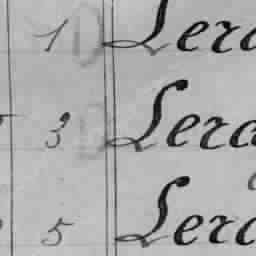 1 Lera
3 Lera
5 Lera